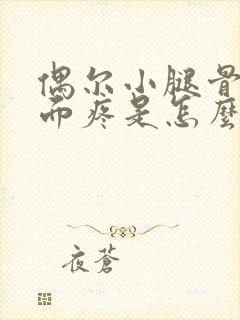 偶尔小腿骨
而疼是怎麼
夜蒼